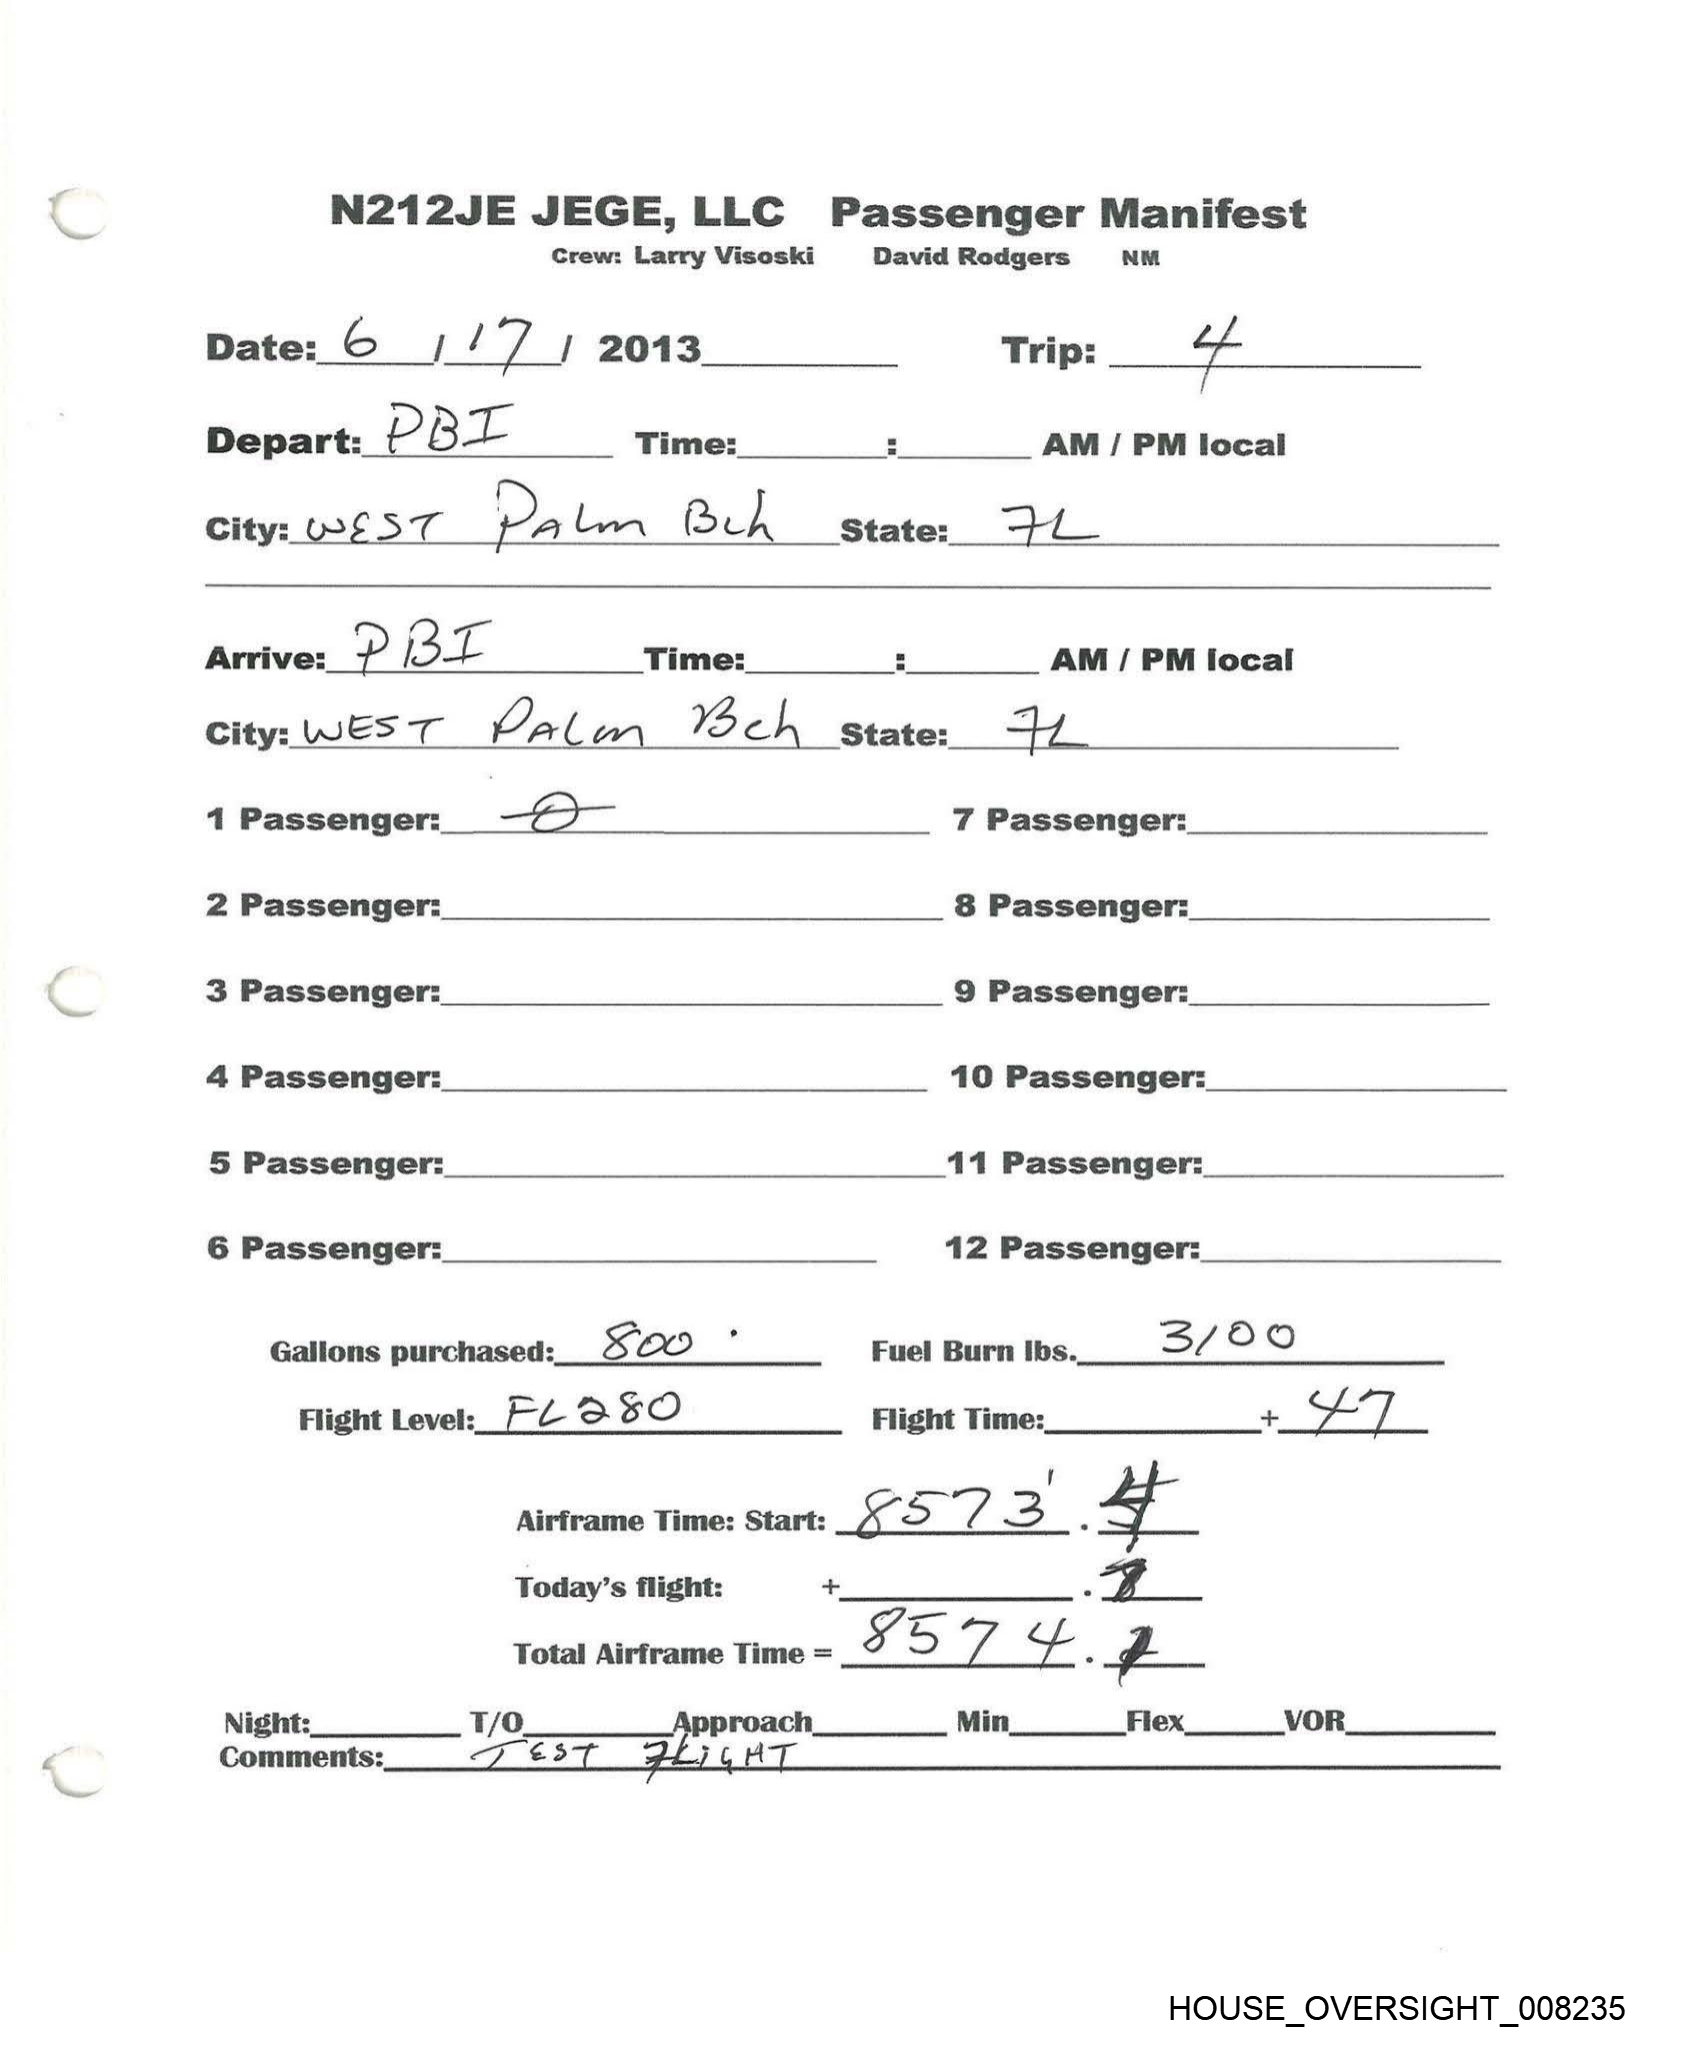 N212JE JEGE, LLC Passenger Manifest
Crew: Larry Visoski David Rodgers NM
Date: 6 / 17 / 2013 Trip: 4
Depart: PBI Time: : AM / PM local
City: WEST PALM Bch State: FL
Arrive: PBI Time: : AM / PM local
City: WEST PALM Bch State: FL
1 Passenger: 0 7 Passenger:
2 Passenger: 8 Passenger:
3 Passenger: 9 Passenger:
4 Passenger: 10 Passenger:
5 Passenger: 11 Passenger:
6 Passenger: 12 Passenger:
Gallons purchased: 800 Fuel Burn lbs. 3100
Flight Level: FL280 Flight Time: + 47
Airframe Time: Start: 8573 .
Today's flight: + .
Total Airframe Time = 8574 .
Night: T/O Approach Min Flex VOR
Comments: TEST FLIGHT
HOUSE_OVERSIGHT_008235